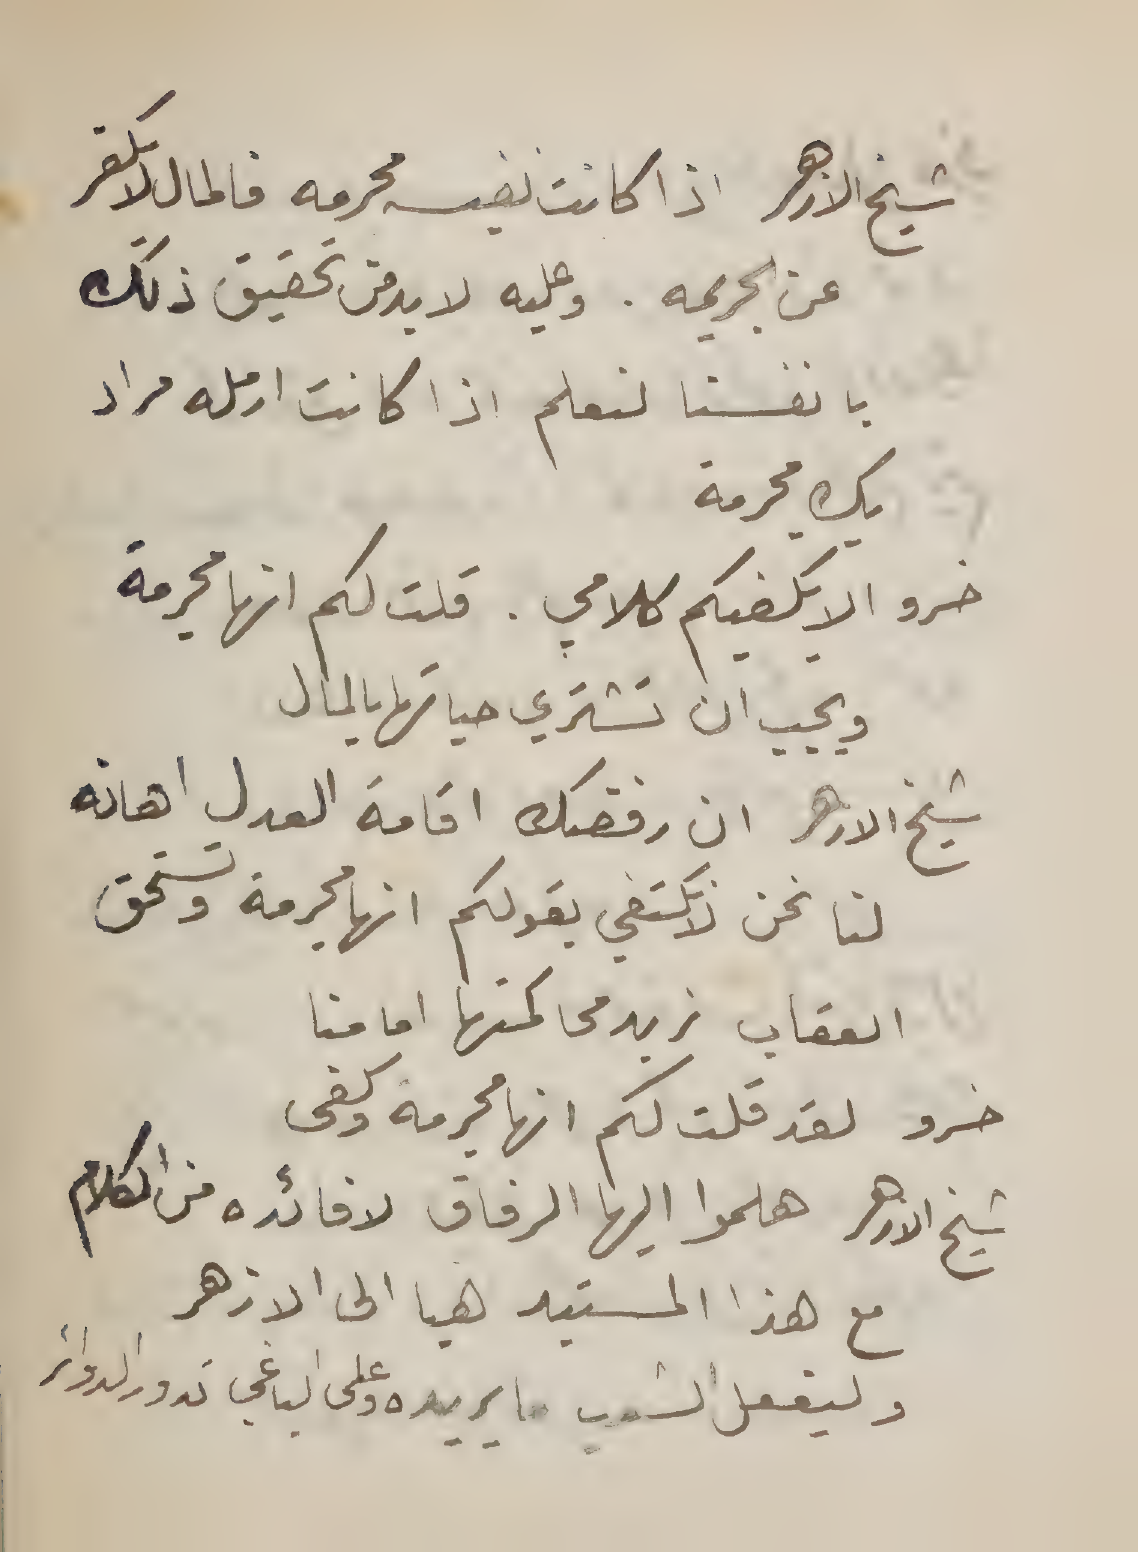 شيخ الازهر اذا كانت نفيسه مجرمه فالمال لا يكفر
عن الجريمه . وعليه لا بد من تحقيق ذلك
بانفسنا لنعلم اذا كانت ارمله مراد
بك مجرمة
خسرو الا يكفيكم كلامي . قلت لكم انها مجرمة
ويجب ان تشتري حياتها بالمال
شيخ الازهر ان رفضك اقامة العدل اهانه
لنا نحن لا نكتفي بقولكم انها مجرمة وتستحق
العقاب نريد محاكمتها امامنا
خسرو لقد قلت لكم انها مجرمة وكفى
شيخ الازهر هلموا ايها الرفاق لا فائده من الكلام
مع هذا المستبد هيا الى الازهر
وليفعل الشعب ما يريده وعلى الباغي تدور الدوائر